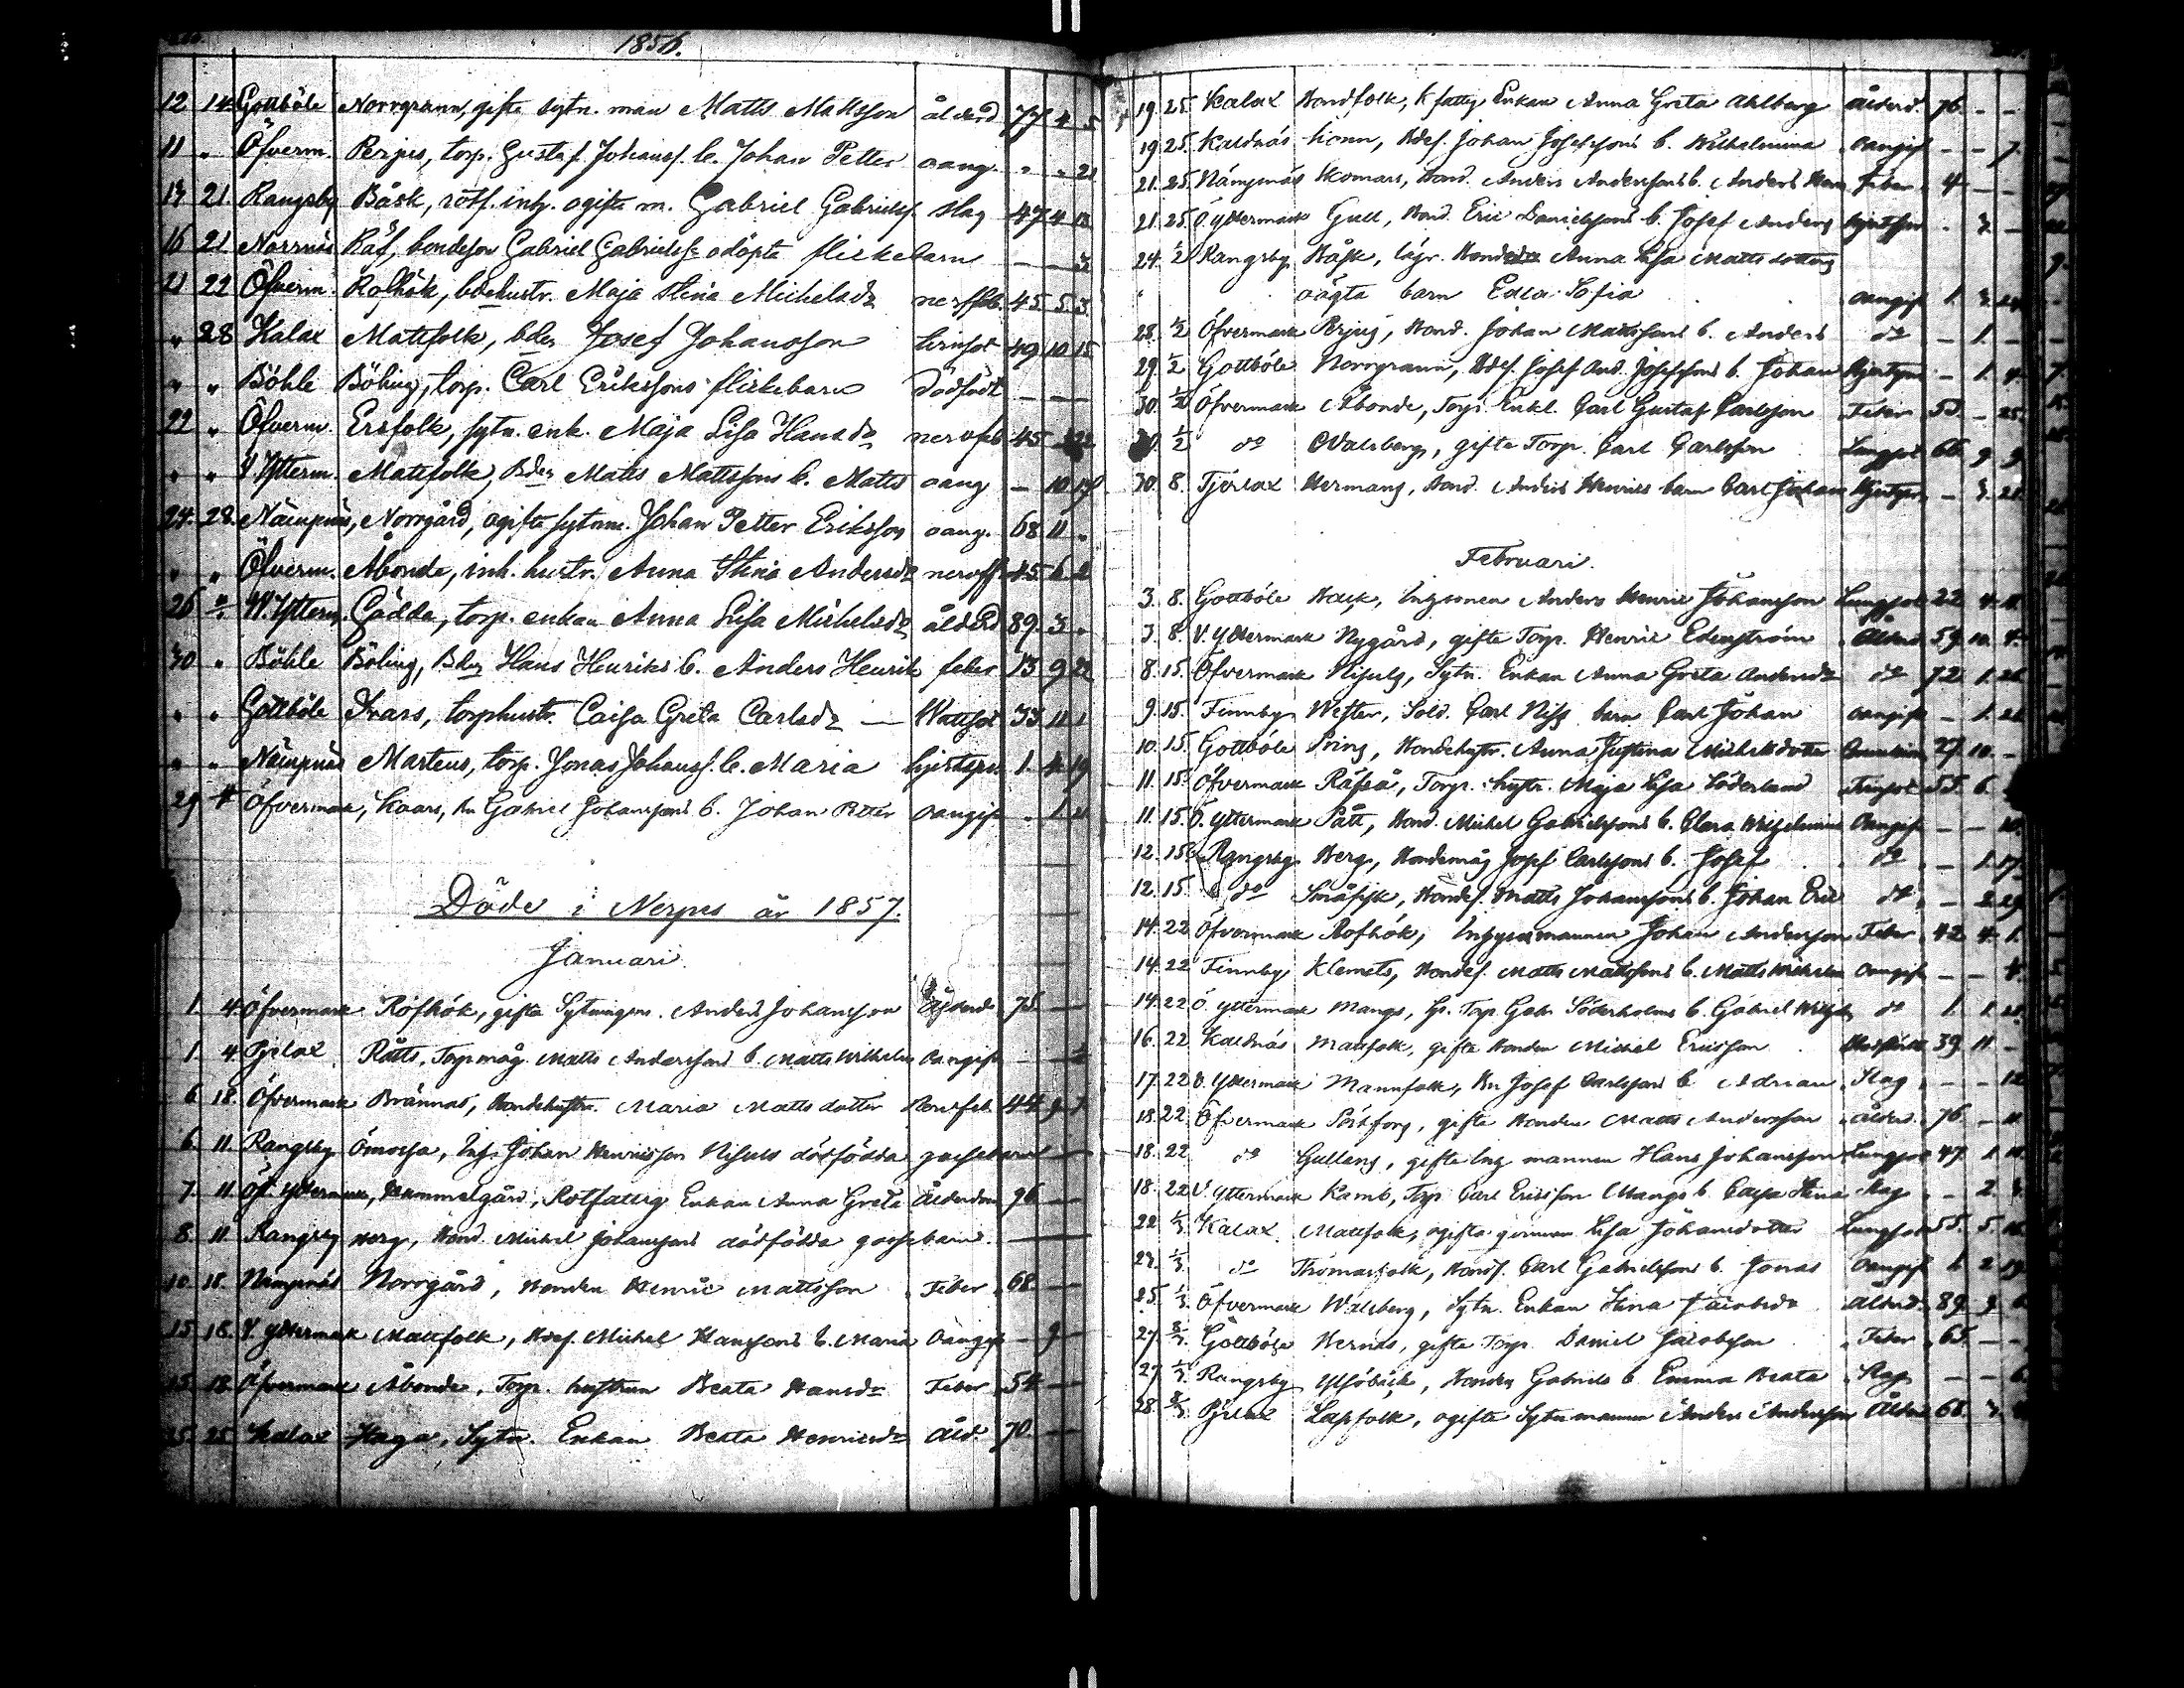 1856.
12 14 Gottböle Norrgrann, gifte sytn. man Matts Mattsson ålderd 77 4 5
11 " Öfverm. Perjus, torp. Gustaf Johanss. b. Johan Petter oang. " " 21
17 21. Rangsby Båsk, rotf. inh. ogifte m. Gabriel Gabrielss. slag 47 4 13
16 21 Norrnäs Räf, bondeson Gabriel Gabrielss. odöpta flickebarn — — 3
21 22 Öfverm. Rofhök, bdehustr. Maja Stina Michelsdr nervfeb. 45 5 3
" 28 Kalax Mattfolk, bden Josef Johansson 49 10 15
" " Böhle Böling, torp. Carl Erikssons flickebarn dödfödt — — —
22 " Öfverm. Ersfolk, sytn. enk. Maja Lisa Hansdr nervfeb 45
" " V. Ytterm. Mattfolk, Bden Matts Mattssons b. Matts oang — 10 17
24 28. Nämpnäs, Norrgård, ogifte sytnm. Johan Petter Eriksson oang. 68 11 "
" " Öfverm. Åbonde, inh. hustr. Anna Stina Andersdr nervf 45 6 2
26 " Ytterm. Gädda, torp. enkan Anna Lisa Michelsdr ålderd 89 3 "
30 " Böhle Böling, Bden Hans Henriks b. Anders Henrik feber 13 9 22
" " Gottböle Ivars, torphustr. Caisa Greta Carlsdr — Wattsot 33 11 1
" " Nämpnäs Martens, torp. Jonas Johanss. b. Maria 1. 4 19
29 4 Öfvermark, Kaars, Gabriel Johanssons b. Johan Petter Oangif. - 1
Döde i Nerpes år 1857.
Januari.
1. 4. Öfvermark Rofhök, gifte Sytningsm. Anders Johansson Ålderd. 75 —
1. 4. Pjelax Rätts, Torpmåg Matts Anderssons b. Matts Wilhelm Oangif. —
6. 18. Öfvermark Brännas, Bondehustrn. Maria Matts dotter 44 9 7
6. 11. Rangsby Ömossa, Inh. Johan Henricsson dödfödda gossebarn —
7. 11. Öf. Yttermark, Hammelgård, Rotfattig Enkan Anna Greta Ålderdom 96 —
8. 11. Rangsby Berg, Bond. Michel Johanssons dödfödda gossebarn. —
10. 18. Nämpnäs Norrgård, Bonden Henric Mattsson Feber 68 —
15. 18. V. Yttermark Mattfolk, Bdes. Michel Hanssons b. Maria Oangif. — 9 —
15. 18. Öfvermark Åbonde, Torp. hustrun Beata Hansdr Feber 54 —
25. 25. Kalax Haga, Sytn. Enkan Beata Henricsdr Åld. 70 —
19. 25. Kalax Bondfolk, fattig Enkan Anna Greta Ahlberg Ålderd. 76. - -
19. 25. Kaldnäs Bdes. Johan Josefssons b. Wilhelmina Oangif. — — 7.
21. 25. Nämpnäs Skomars, Bond. Anders Anderssons b. Anders Feber 4 — —
21. 25. Ö. Yttermark Gull, Bond. Eric Danielssons b. Josef Anders - 3. —
24. 1/2 Rangsby Båsk, Anna Lisa Matts dotters
oägta barn Edla Sofia Oangif. 1. 3. 24.
28. 1/2 Öfvermark Perjus, Bond. Johan Mattssons b. Anders do — 1. —
29. 1/2 Gottböle Norrgrann, Bdes. Josef And. Josefssons b. Johan — 1. 4.
30. 1/2 Öfvermark Åbonde, Torp. Enkl. Carl Gustaf Carlsson Feber 53. — 25.
1/2 do Walsberg, gifte Torp. Carl Carlsson Lungsot 66 9 9
30. 8. Tjerlax Hermans, Bond. Anders Henrics barn Carl Johan — 3. 21.
Februari.
3. 8. Gottböle Back, Inhysonen Anders Henric Johansson Lungsot 22 4
3. 8. V. Yttermark Nygård, gifte Torp. Henric Edenström 59 10. 4.
8. 15. Öfvermark Nisula, Sytn. Enkan Anna Greta Andersdr do 72 1. 26
9. 15. Finnby Wester, Sold. Carl Niss barn Carl Johan Oangif. — 1. 21
10. 15. Gottböle Prins, Bondehustr. Anna Justina Michelsdotter 27 10. —
11. 15. Öfvermark Räfså, Torp. hustr. Maja Lisa Söderlund 55 6.
11. 15. Ö. Yttermark Pått, Bond. Michel Gabrielssons b. Clara Wilhelmina Oangif. — — 10.
12. 15. Rangsby Berg, Bondemåg Josef Carlssons b. Josef do — 1. 17.
12. 15. do Småfisk, Bondes. Matts Johanssons b. Johan Eric do — 2 29
14. 22 Öfvermark Rofhök, Inhysesmannen Johan Andersson Feber 42 4. 1.
14. 22 Finnby Klemets, Bondes. Matts Mattssons b. Matts Wilhelm Oangif. — — 4.
14. 22 Ö. Yttermark Mangs, Torp. Gabr. Söderholms b. Gabriel do 1. 1.
16. 22 Kaldnäs Mattfolk, gifte Bonden Michel Ericsson 39 11. —
17. 22 Ö. Yttermark Mannfolk, Bn Josef Carlssons b. Adrian Slag — — 12
18. 22. Öfvermark gifte Bonden Matts Andersson Ålderd. 76 — 11
18. 22 do Gullans, gifte Inh. mannen Hans Johansson Lungsot 47 1
18. 22 V. Yttermark Kamb, Torp. Carl Ericsson Mangs b. Cajsa Stina Slag — 2.
22. 1/3 Kalax Mattfolk, ogifta qvinnan Lisa Johansdotter Lungsot 55. 5.
23. 1/3 do Thomasfolk, Bonds. Carl Gabrielssons b. Jonas Oangif. 6 2 19
25. 1/3 Öfvermark Walsberg, Sytn. Enkan Stina Jacobsdr Ålderd. 89. 9. 6.
27. 8/3 Gottböle Hernäs, gifte Torp. Daniel Jacobsson Feber 65. — —
27. 1/3 Rangsby Gabriels b. Emma Beata Slag — — 6.
28. 8/3 Pjelax Lapfolk, ogifte Sytn mannen Anders Andersson Ålderd. 68.